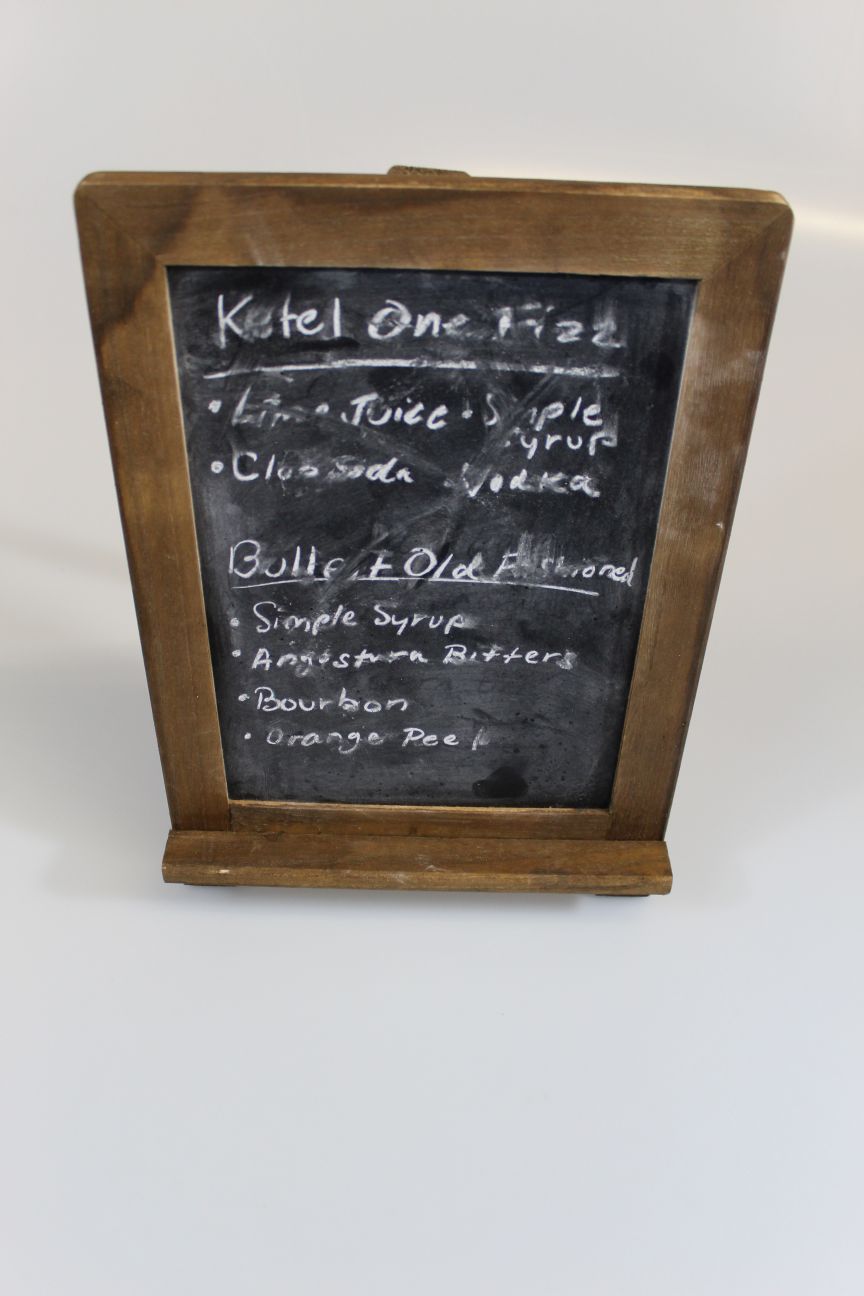 Ketel One Fizz
• Lime Juice • Simple
Syrup
• Club Soda • Vodka
Bulleit Old Fashioned
• Simple Syrup
• Angostura Bitters
• Bourbon
• Orange Peel